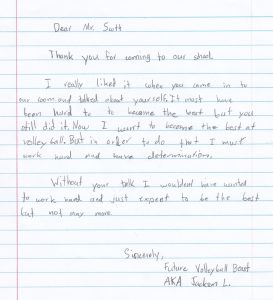 Dear Mr. Swtt
Thank you for coming to our shool.
I really liked it when you came in to
our room and talked about yourself. It most have
been hard to to become the best but you
still did it. Now I want to become the best at
volley ball. But in order to do that I must
work hard and have determination.
Without your talk I wouldent have wanted
to work hard and just expect to be the best
but not may more.
Sincerely,
Future Volleyball
AKA Jackson L.